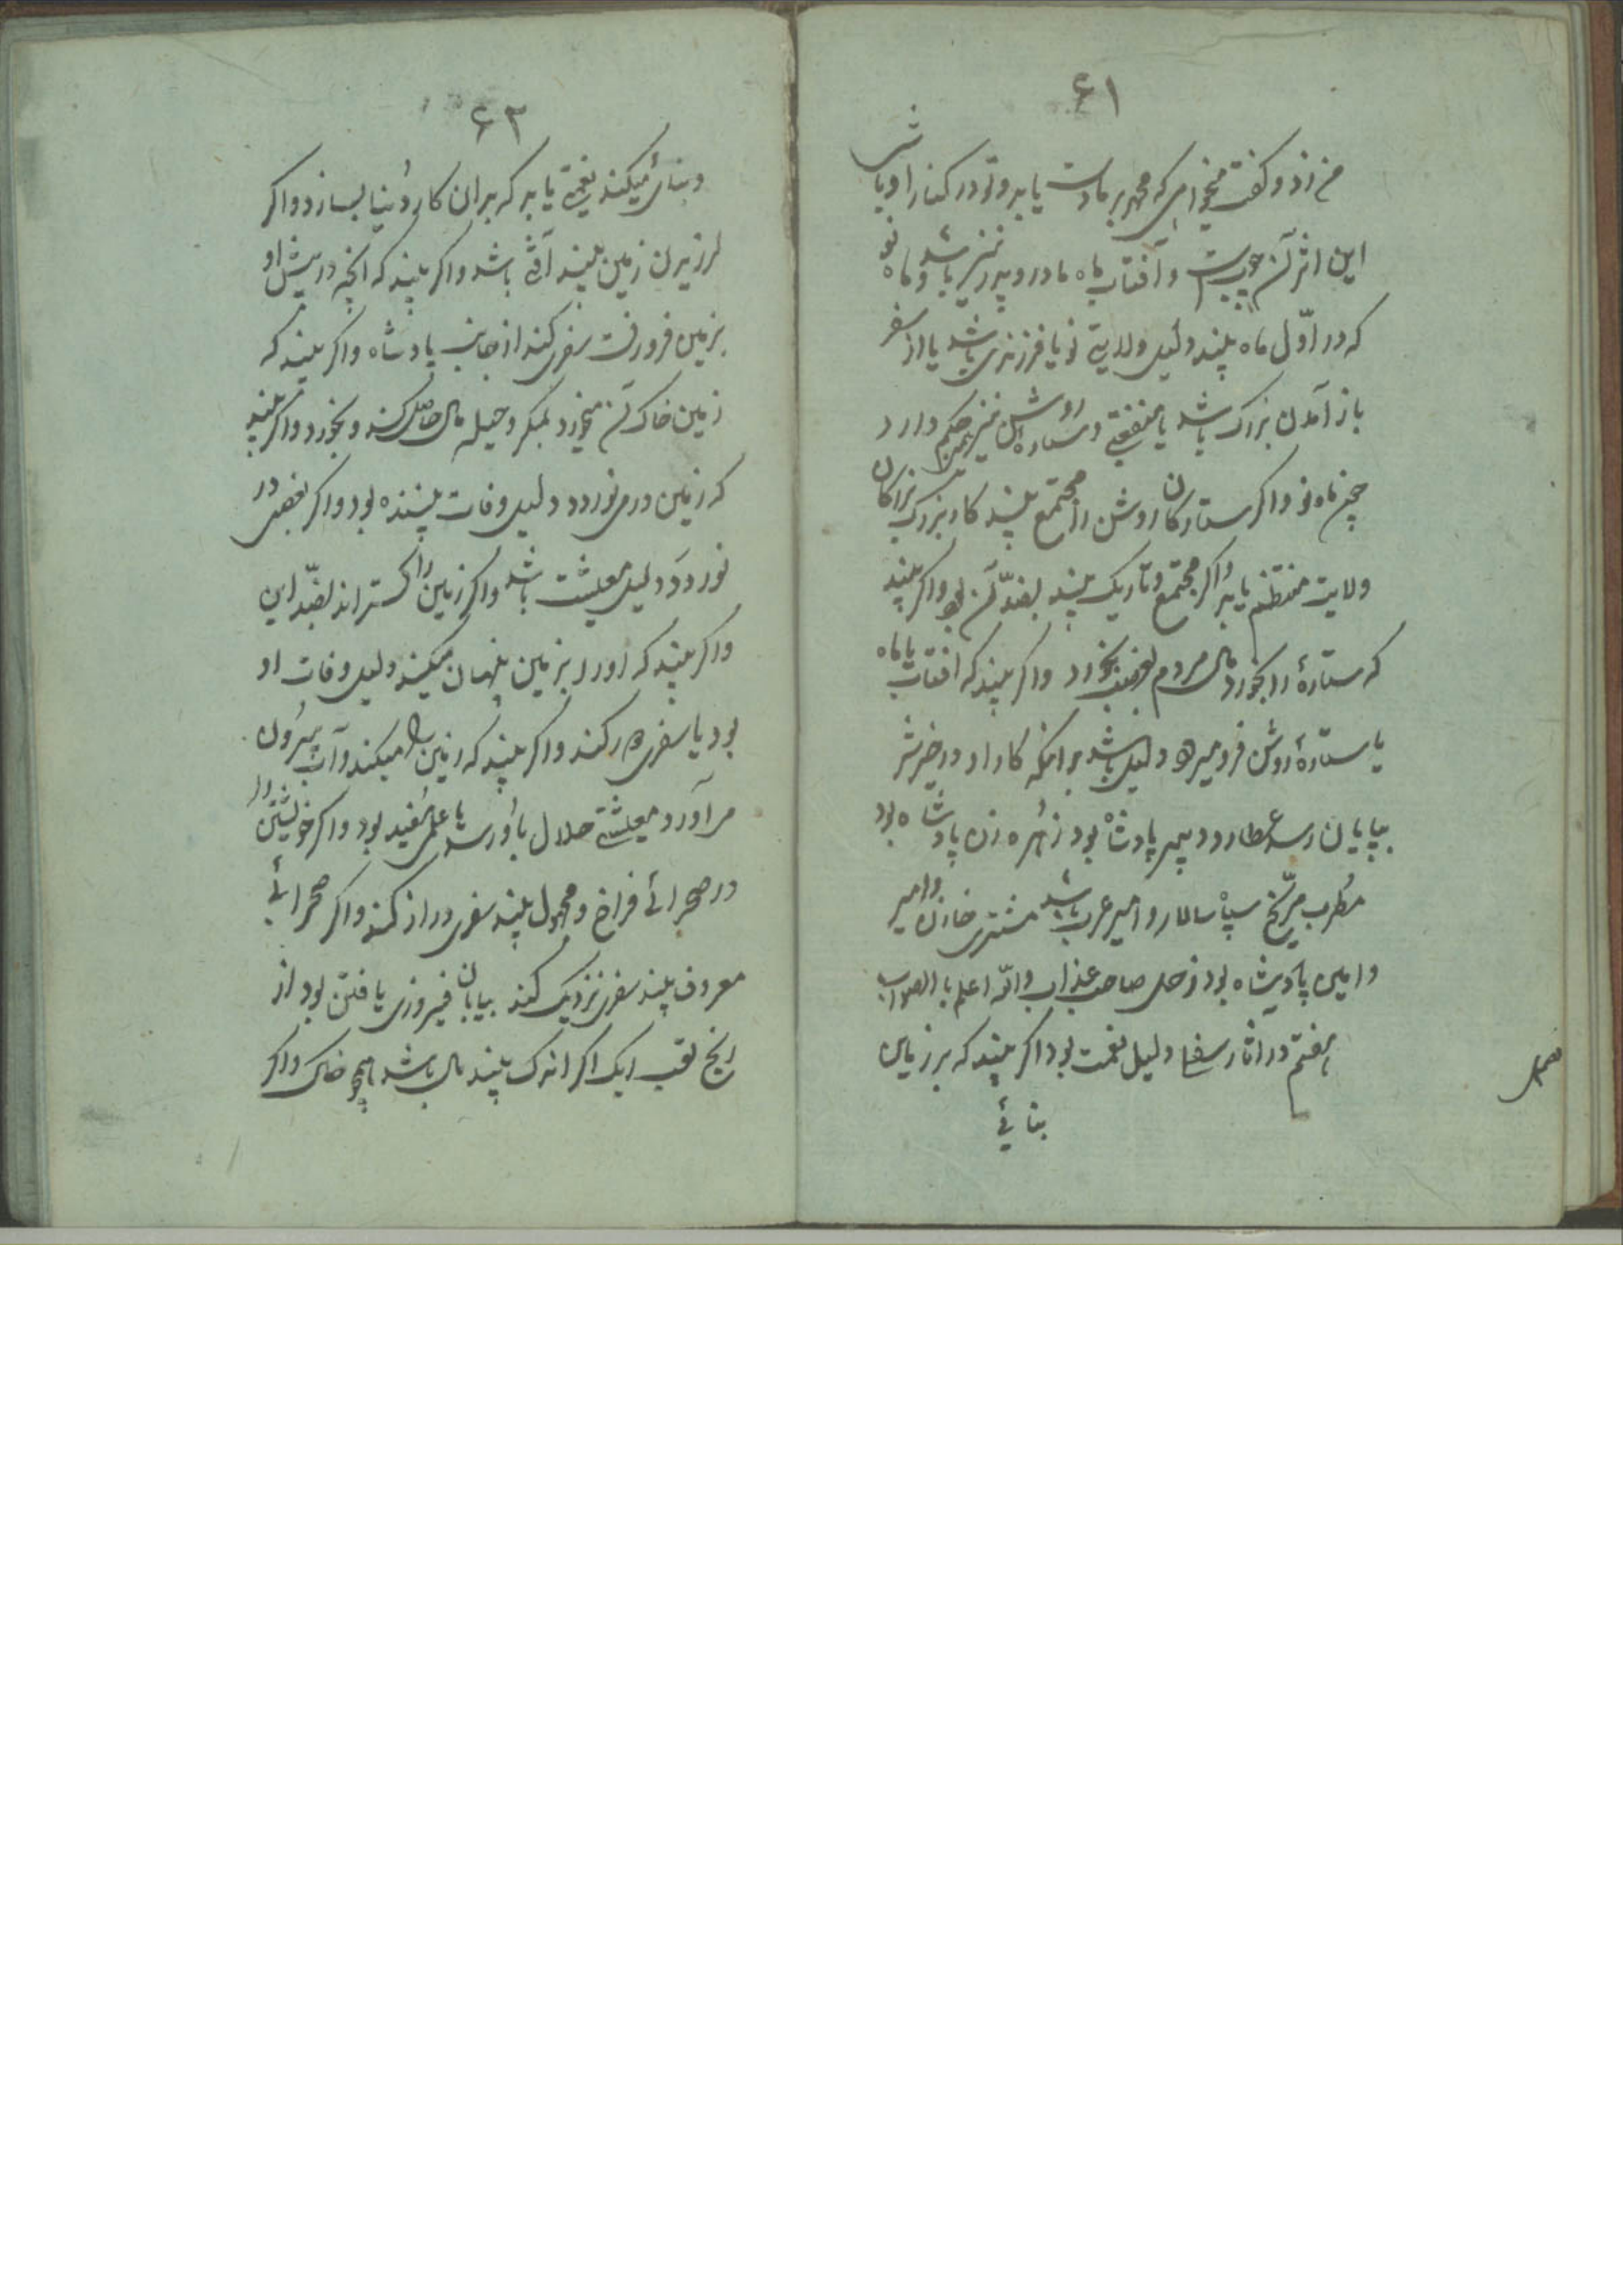 ۶۱
و گفت میخواهی که مهر بر مادرت یابد و تو در کنار او باشی
این اثر آن چوبست و آفتاب ماه مادر و پدر نیز باشد و ماه نو
که در اوّل ماه بیند دلیل ولایتی نو یا فرزندی باشد یا از سفر
باز آمدن بزرک باشد یا منفعتی و ستاره روشن نیز همین حکم دارد
چون ماه نو و اکر ستارکان روشن را مجتمع بیند کار بزرک بزرکان
ولایت منتظم یابد و اکر مجتمع و تاریک بیند بضدّ آن بود و اکر بیند
که ستارهٔ را بخورد مال مردم بغصب بخورد واکر بیند که افتاب یا ماه
یا ستارهٔ روشن فرو میرود دلیل باشد برانکه کار او در خیر و شر
بپایان رسد عطارد دبیر پادشاه بود زُهره زن پادشاه بود
مطرب مرّیخ سپاه سالار و امیر عرب باشد مشتری خازن و امیر
و امین پادشاه بود زحل صاحب عذاب والله اعلم بالصواب
فصل
هفتم در اثار سفلی دلیل نعمت بود اکر بیند که بر زمین
بنائی
۶۲
و بنائی میکند نعمتی یابد که بدان کار دُنیا بسازد و اکر
لرزیدن زمین بیند آفتی باشد و اکر بیند که انچه در پیش او
بزمین فرو رفت سفری کند از جانب پادشاه واکر بیند که
زمین خاک آن میخورد بمکر و حیله مال حاصل کند و بخورد و اکر بیند
که زمین در می نوردد دلیل وفات بیننده بود و اکر بعضی در
نوردد دلیل معیشت باشد واکر زمین را کستراند بضدّ این
واکر بیند که او را بزمین پنهان میکنند دلیل وفات او
بود یا سفری دور کند واکر بیند که زمین را میکند و آب بیرون
می آورد معیشتی حلال باو رسد یا علمی مفید بود و اکر خویشتن را
در صحرائی فراخ و مجهول بیند سفری دراز کند و اکر صحرائی
معروف بیند سفری نزدیک کند بیابان فیروزی یافتن بود از
رنج تعب ریک اکر اندک بیند مال باشد همچو خاک واکر